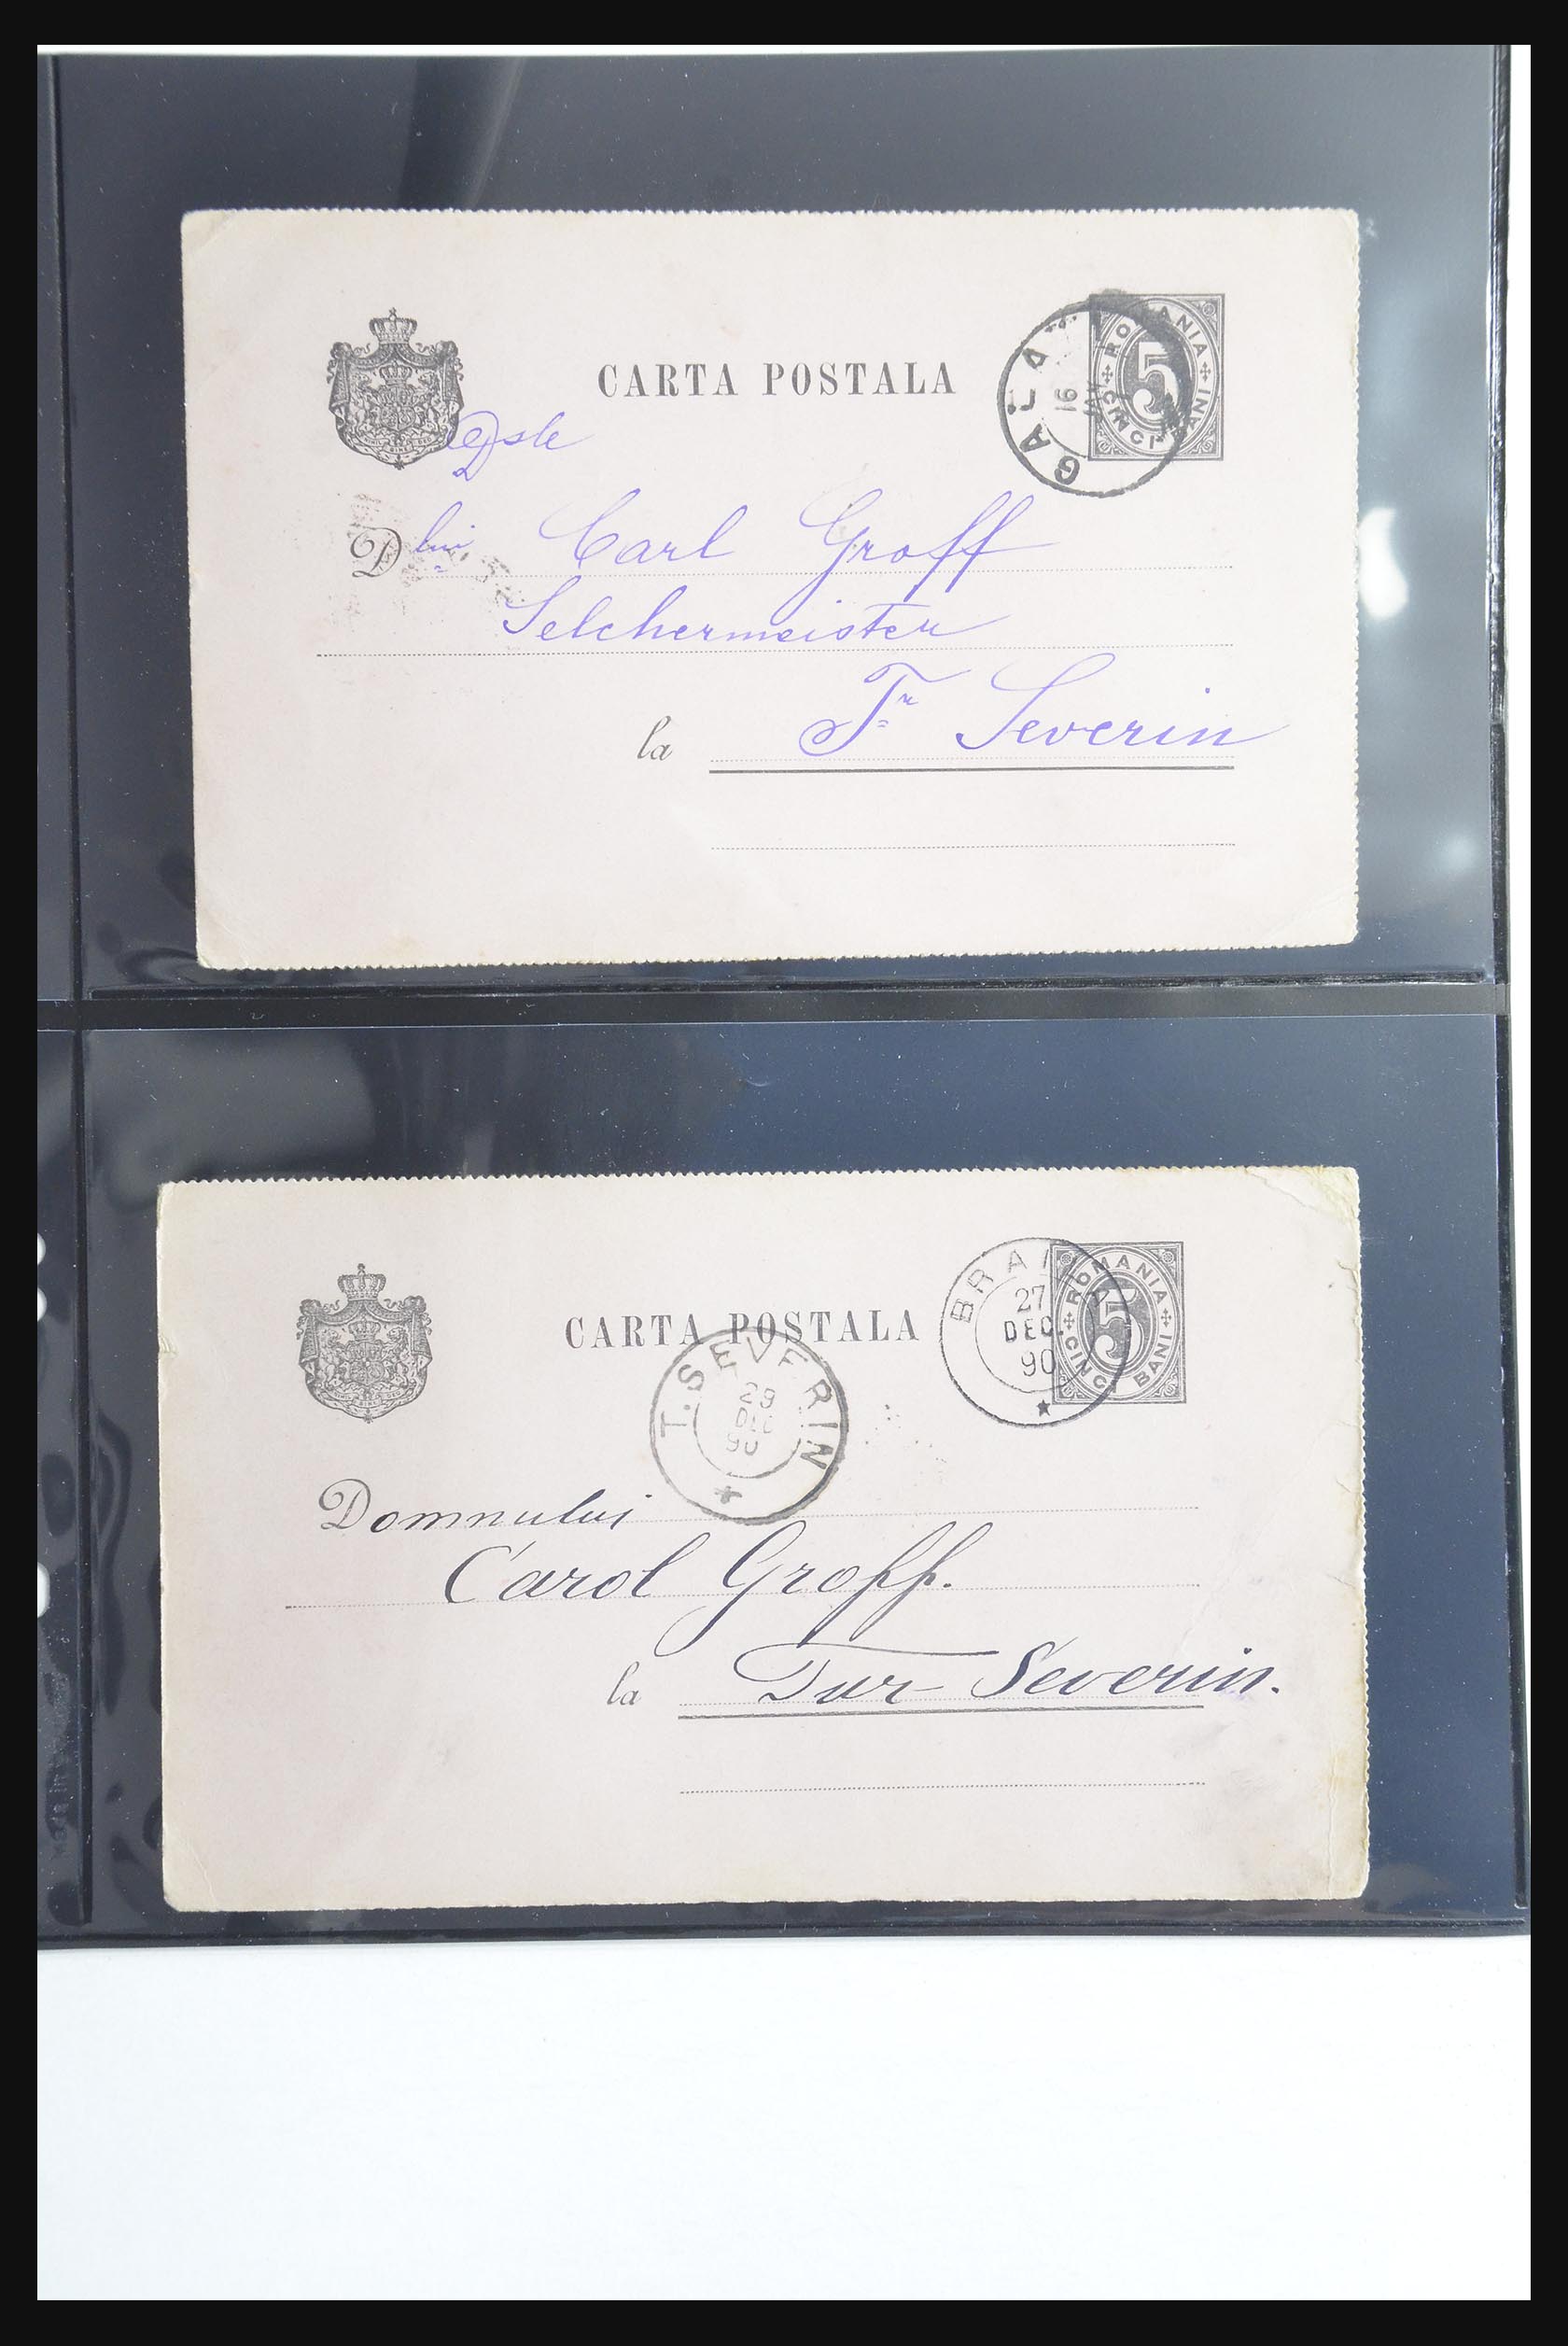 CARTA POSTALA
ROMANIA
5
CINCI BANI
GALA
16
D lui Carl Groff
Selchermeister
la Tr Severin
CARTA POSTALA
ROMANIA
5
CINCI BANI
BRAI
27
DEC.
90
T. SEVERIN
29
DEC
90
Domnului
Carol Groff.
la Tur-Severin.